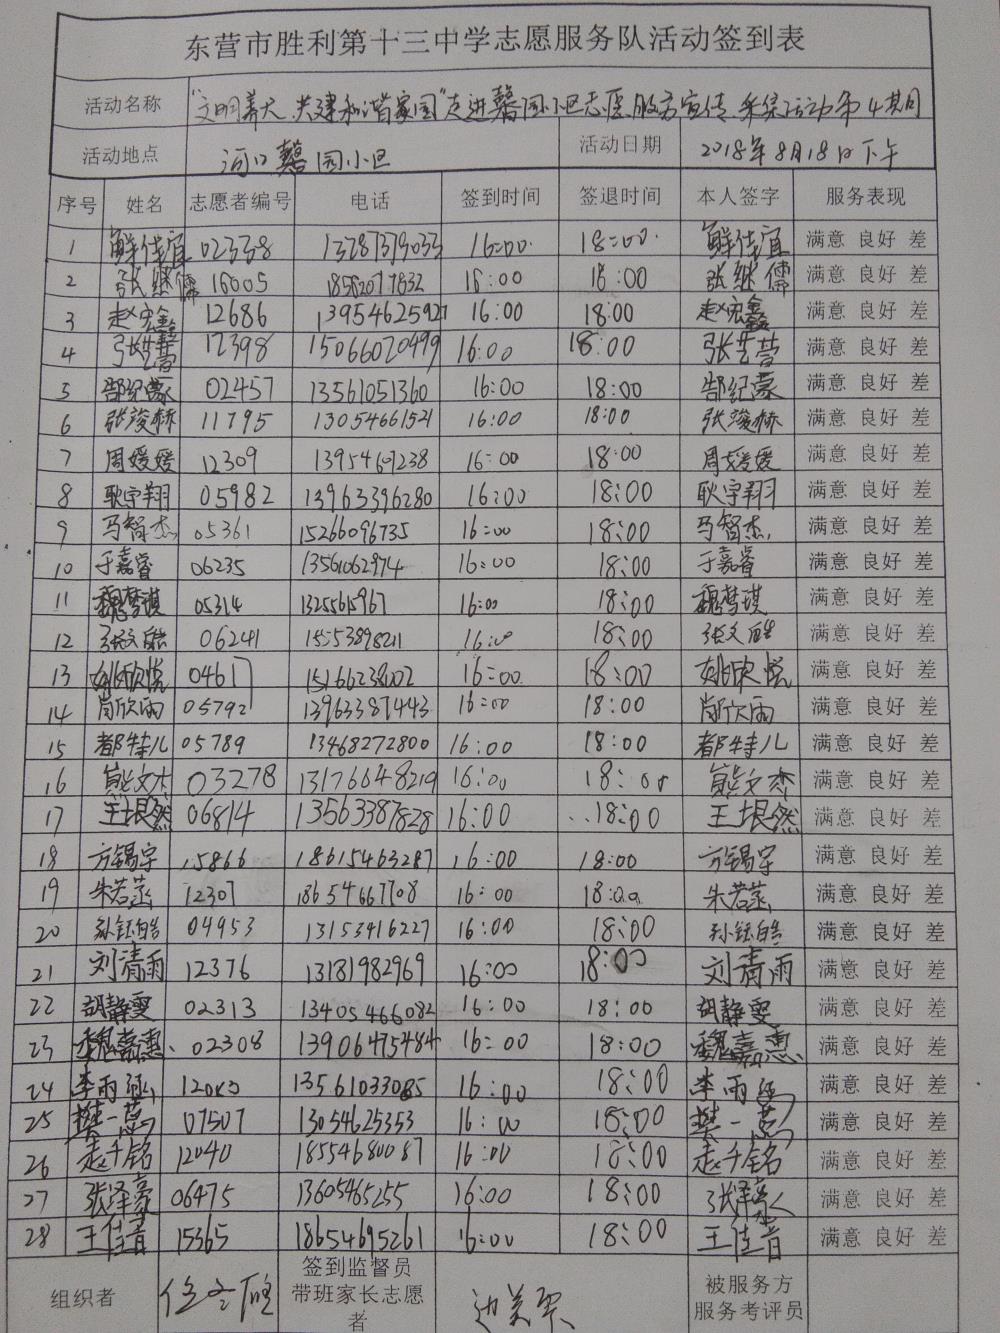 东营市胜利第十三中学志愿服务队活动签到表
活动名称 “文明养犬、共建和谐家园”走进馨园小区志愿服务宣传系统活动第4期
活动地点 河口馨园小区 活动日期 2018年8月18日下午
序号 姓名 志愿者编号 电话 签到时间 签退时间 本人签字 服务表现
1 鲜佳宜 02338 13287379033 16:00 18:00 鲜佳宜 满意 良好 差
2 张继儒 16005 18:00 张继儒 满意 良好 差
3 赵宏鑫 12686 13954625927 16:00 18:00 赵宏鑫 满意 良好 差
4 张芸菅 12398 15066020499 16:00 18:00 张芸菅 满意 良好 差
5 郜纪蒙 02457 13561051360 16:00 18:00 郜纪蒙 满意 良好 差
6 张骏赫 11795 13054661521 16:00 18:00 张骏赫 满意 良好 差
7 周媛媛 12309 13954609238 16:00 18:00 周媛媛 满意 良好 差
8 耿宇翔 05982 13963396280 16:00 18:00 耿宇翔 满意 良好 差
9 马智杰 05361 15266096735 16:00 18:00 马智杰 满意 良好 差
10 于嘉睿 06235 13561062974 16:00 18:00 于嘉睿 满意 良好 差
11 魏梦琪 05314 13255615967 16:00 18:00 魏梦琪 满意 良好 差
12 张文皓 06241 15553898211 16:00 18:00 张文皓 满意 良好 差
13 姚欣悦 04617 15166238602 16:00 18:00 姚欣悦 满意 良好 差
14 肖欣雨 05792 13963387443 16:00 18:00 肖欣雨 满意 良好 差
15 都特儿 05789 13468272800 16:00 18:00 都特儿 满意 良好 差
16 熊文杰 03278 13176648219 16:00 18:00 熊文杰 满意 良好 差
17 王垠然 06814 13563387828 16:00 18:00 王垠然 满意 良好 差
18 方锡宇 15866 18615463287 16:00 18:00 方锡宇 满意 良好 差
19 朱若菡 12307 18654667708 16:00 18:00 朱若菡 满意 良好 差
20 孙钰皓 04953 13153416227 16:00 18:00 孙钰皓 满意 良好 差
21 刘清雨 12376 13181982969 16:00 18:00 刘清雨 满意 良好 差
22 胡静雯 02313 13405466082 16:00 18:00 胡静雯 满意 良好 差
23 魏嘉惠 02308 13906475484 16:00 18:00 魏嘉惠 满意 良好 差
24 李雨涵 13561033085 16:00 18:00 李雨涵 满意 良好 差
25 樊一蒽 07507 13054625353 16:00 18:00 樊一蒽 满意 良好 差
26 赵千铭 12040 18554680087 16:00 18:00 赵千铭 满意 良好 差
27 张泽豪 06475 13605465255 16:00 18:00 张泽豪 满意 良好 差
28 王佳音 15365 18654695261 16:00 18:00 王佳音 满意 良好 差
组织者 签到监督员 被服务方
带班家长志愿 边美翠 服务考评员
者